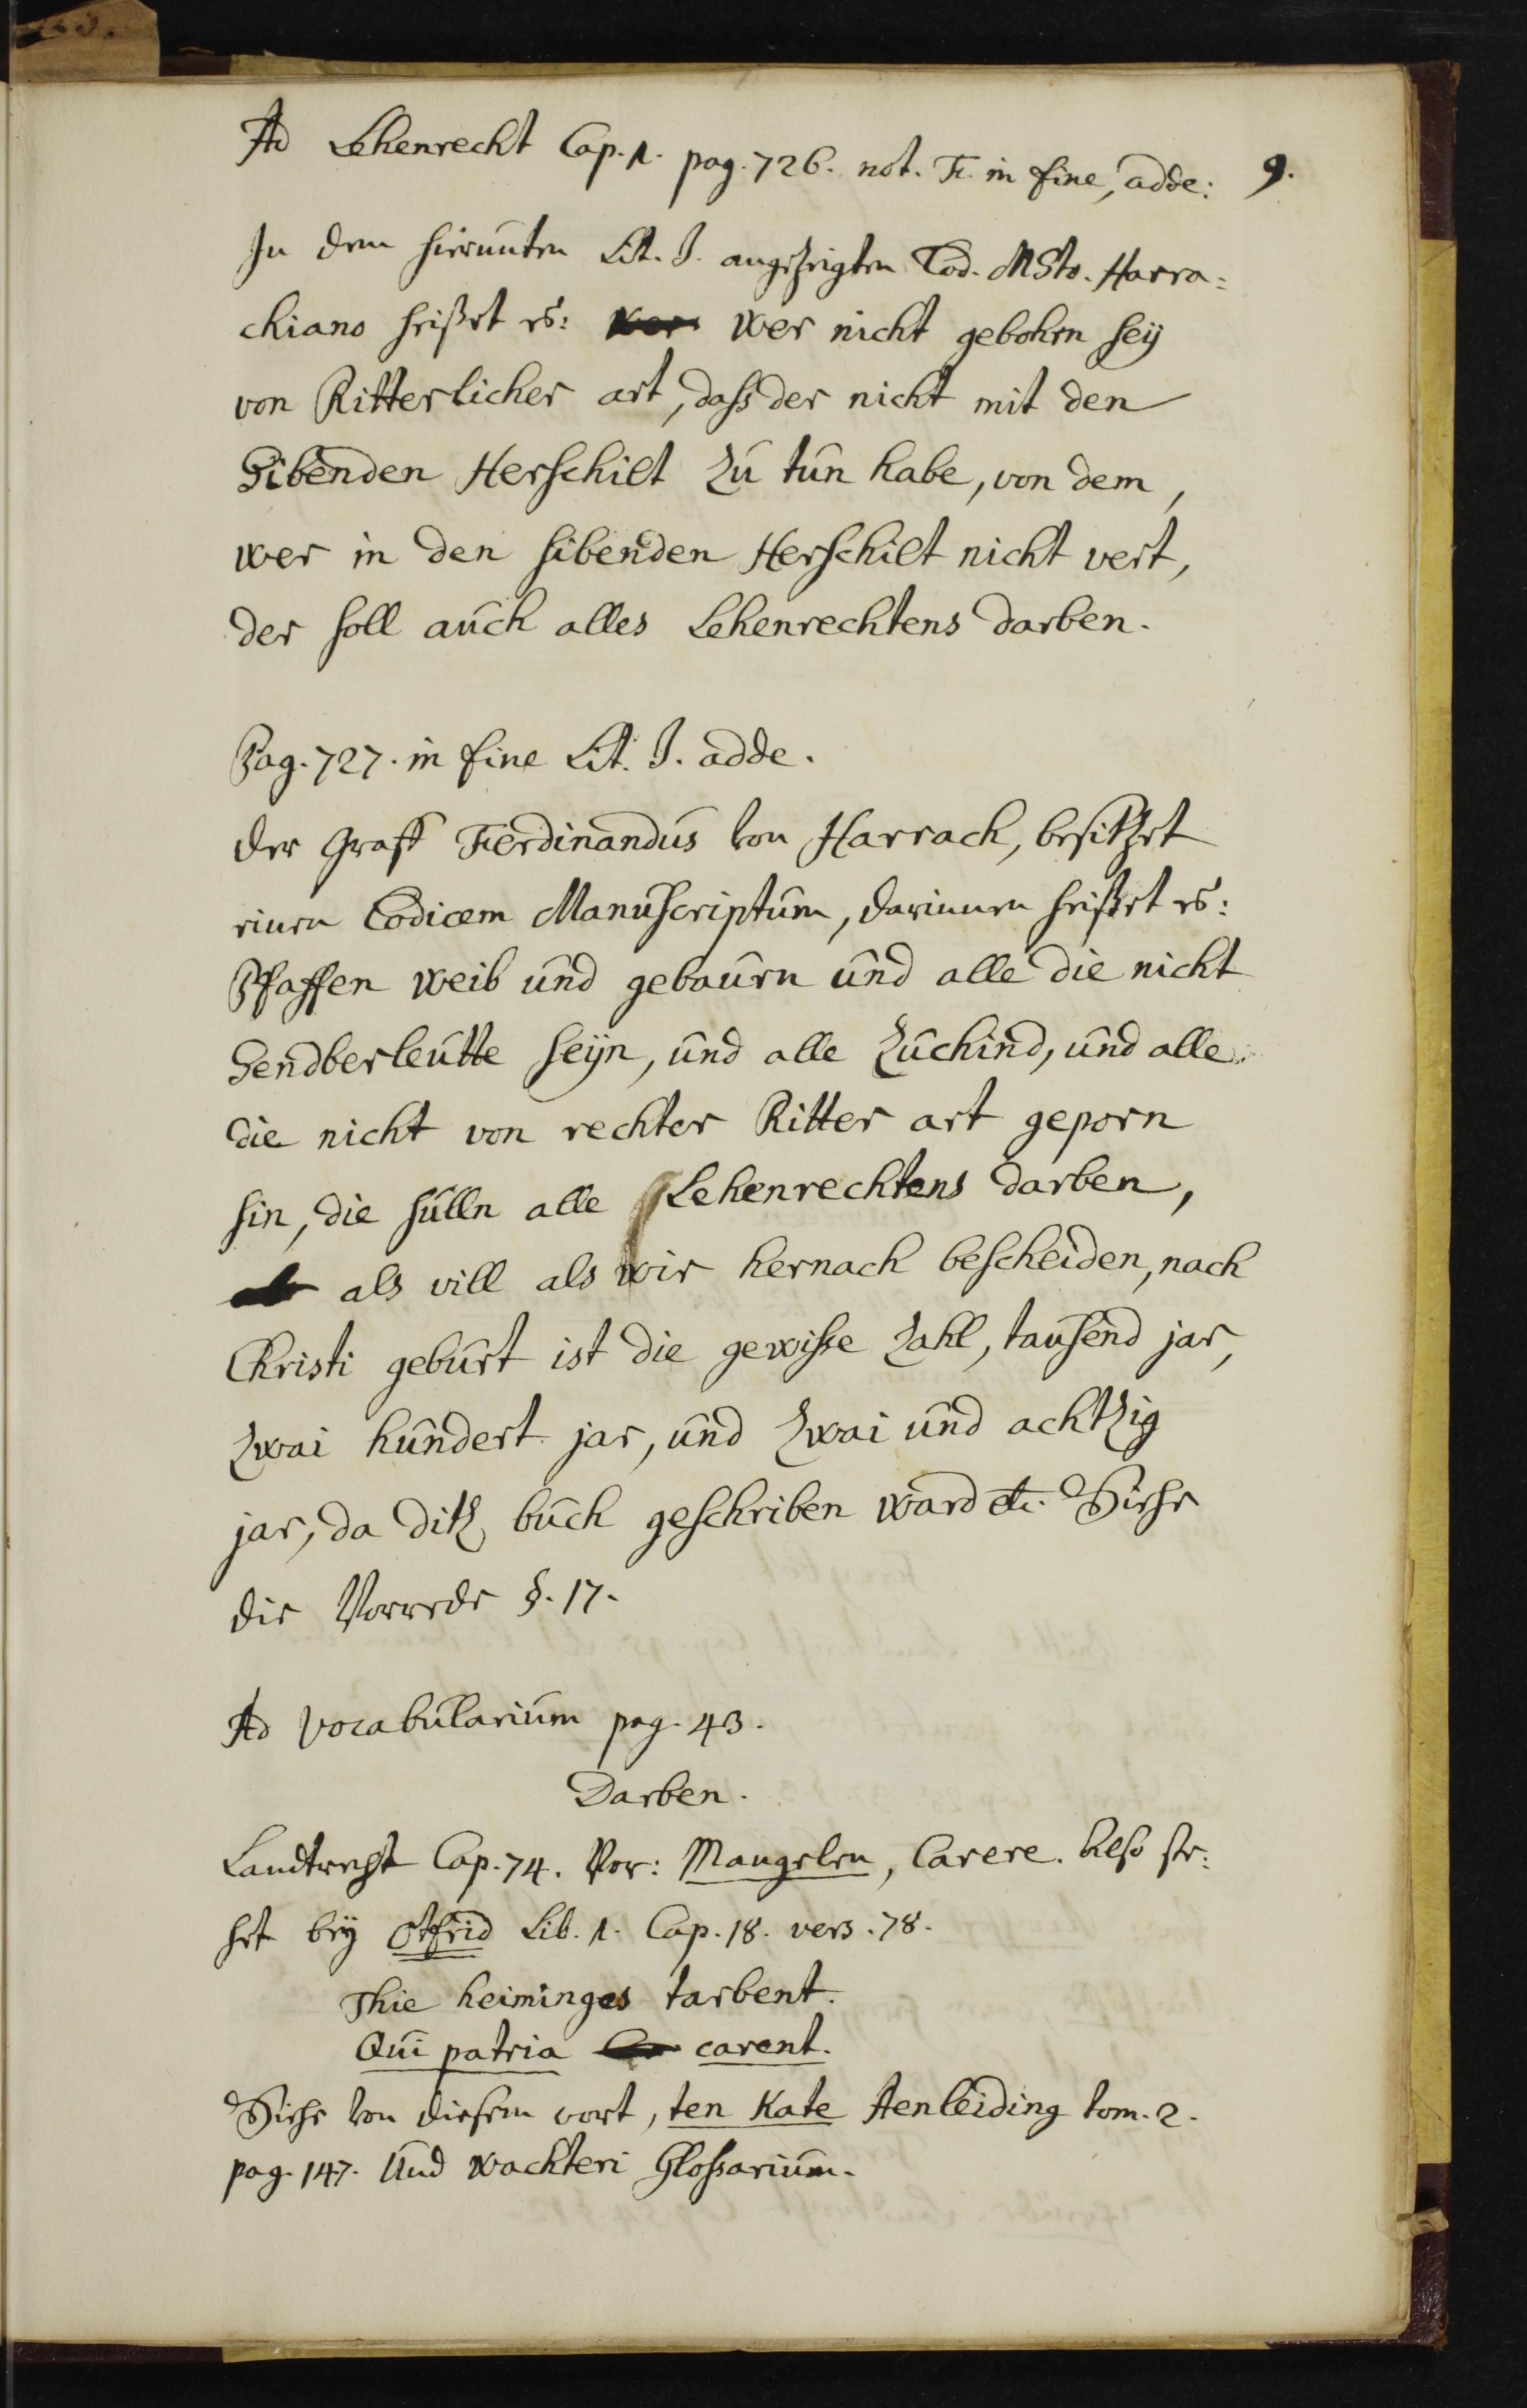 Ad Lehenrecht Cap. 1. pag. 726. not. F. in fine, adde: 9.
In dem hierunten Lit. I. angezeigten Cod. MSto. Harra-
chiano heißet es: wer nicht gebohrn sey
von Ritterlicher art, dass der nicht mit den
Sibenden Herschilt zu tun habe, von dem,
wer in den sibenden Herschilt nicht vert,
der soll auch alles Lehenrechtens darben.
Pag. 727. in fine Lit. I. adde.
der Graff Ferdinandus von Harrach, besitzet
einen Codicem Manuscriptum, darinnen heißet es:
Pfaffen weib und gebaurn und alle die nicht
Sendberleutte seyn, und alle Zuchind, und alle
die nicht von rechter Ritter art geporn
sin, die sulln alle Lehenrechtens darben,
als vill als wir hernach bescheiden, nach
Christi geburt ist die gewisse Zahl, tausend jar,
zwai hundert jar, und zwai und achtzig
jar, da ditz buch geschriben ward etc. Siehe
die Vorrede §. 17.
Ad vocabularium pag. 43.
Darben.
Landtrecht Cap. 74. Vor: Mangelen, Carere. Also ste-
het bey Otfrid Lib. 1. Cap. 18. vers. 78.
Thie heiminges tarbent.
Qui patria carent.
Siehe von diesem wort, ten Kate Aenleiding tom. 2.
pag. 147. Und wachteri Glossarium.